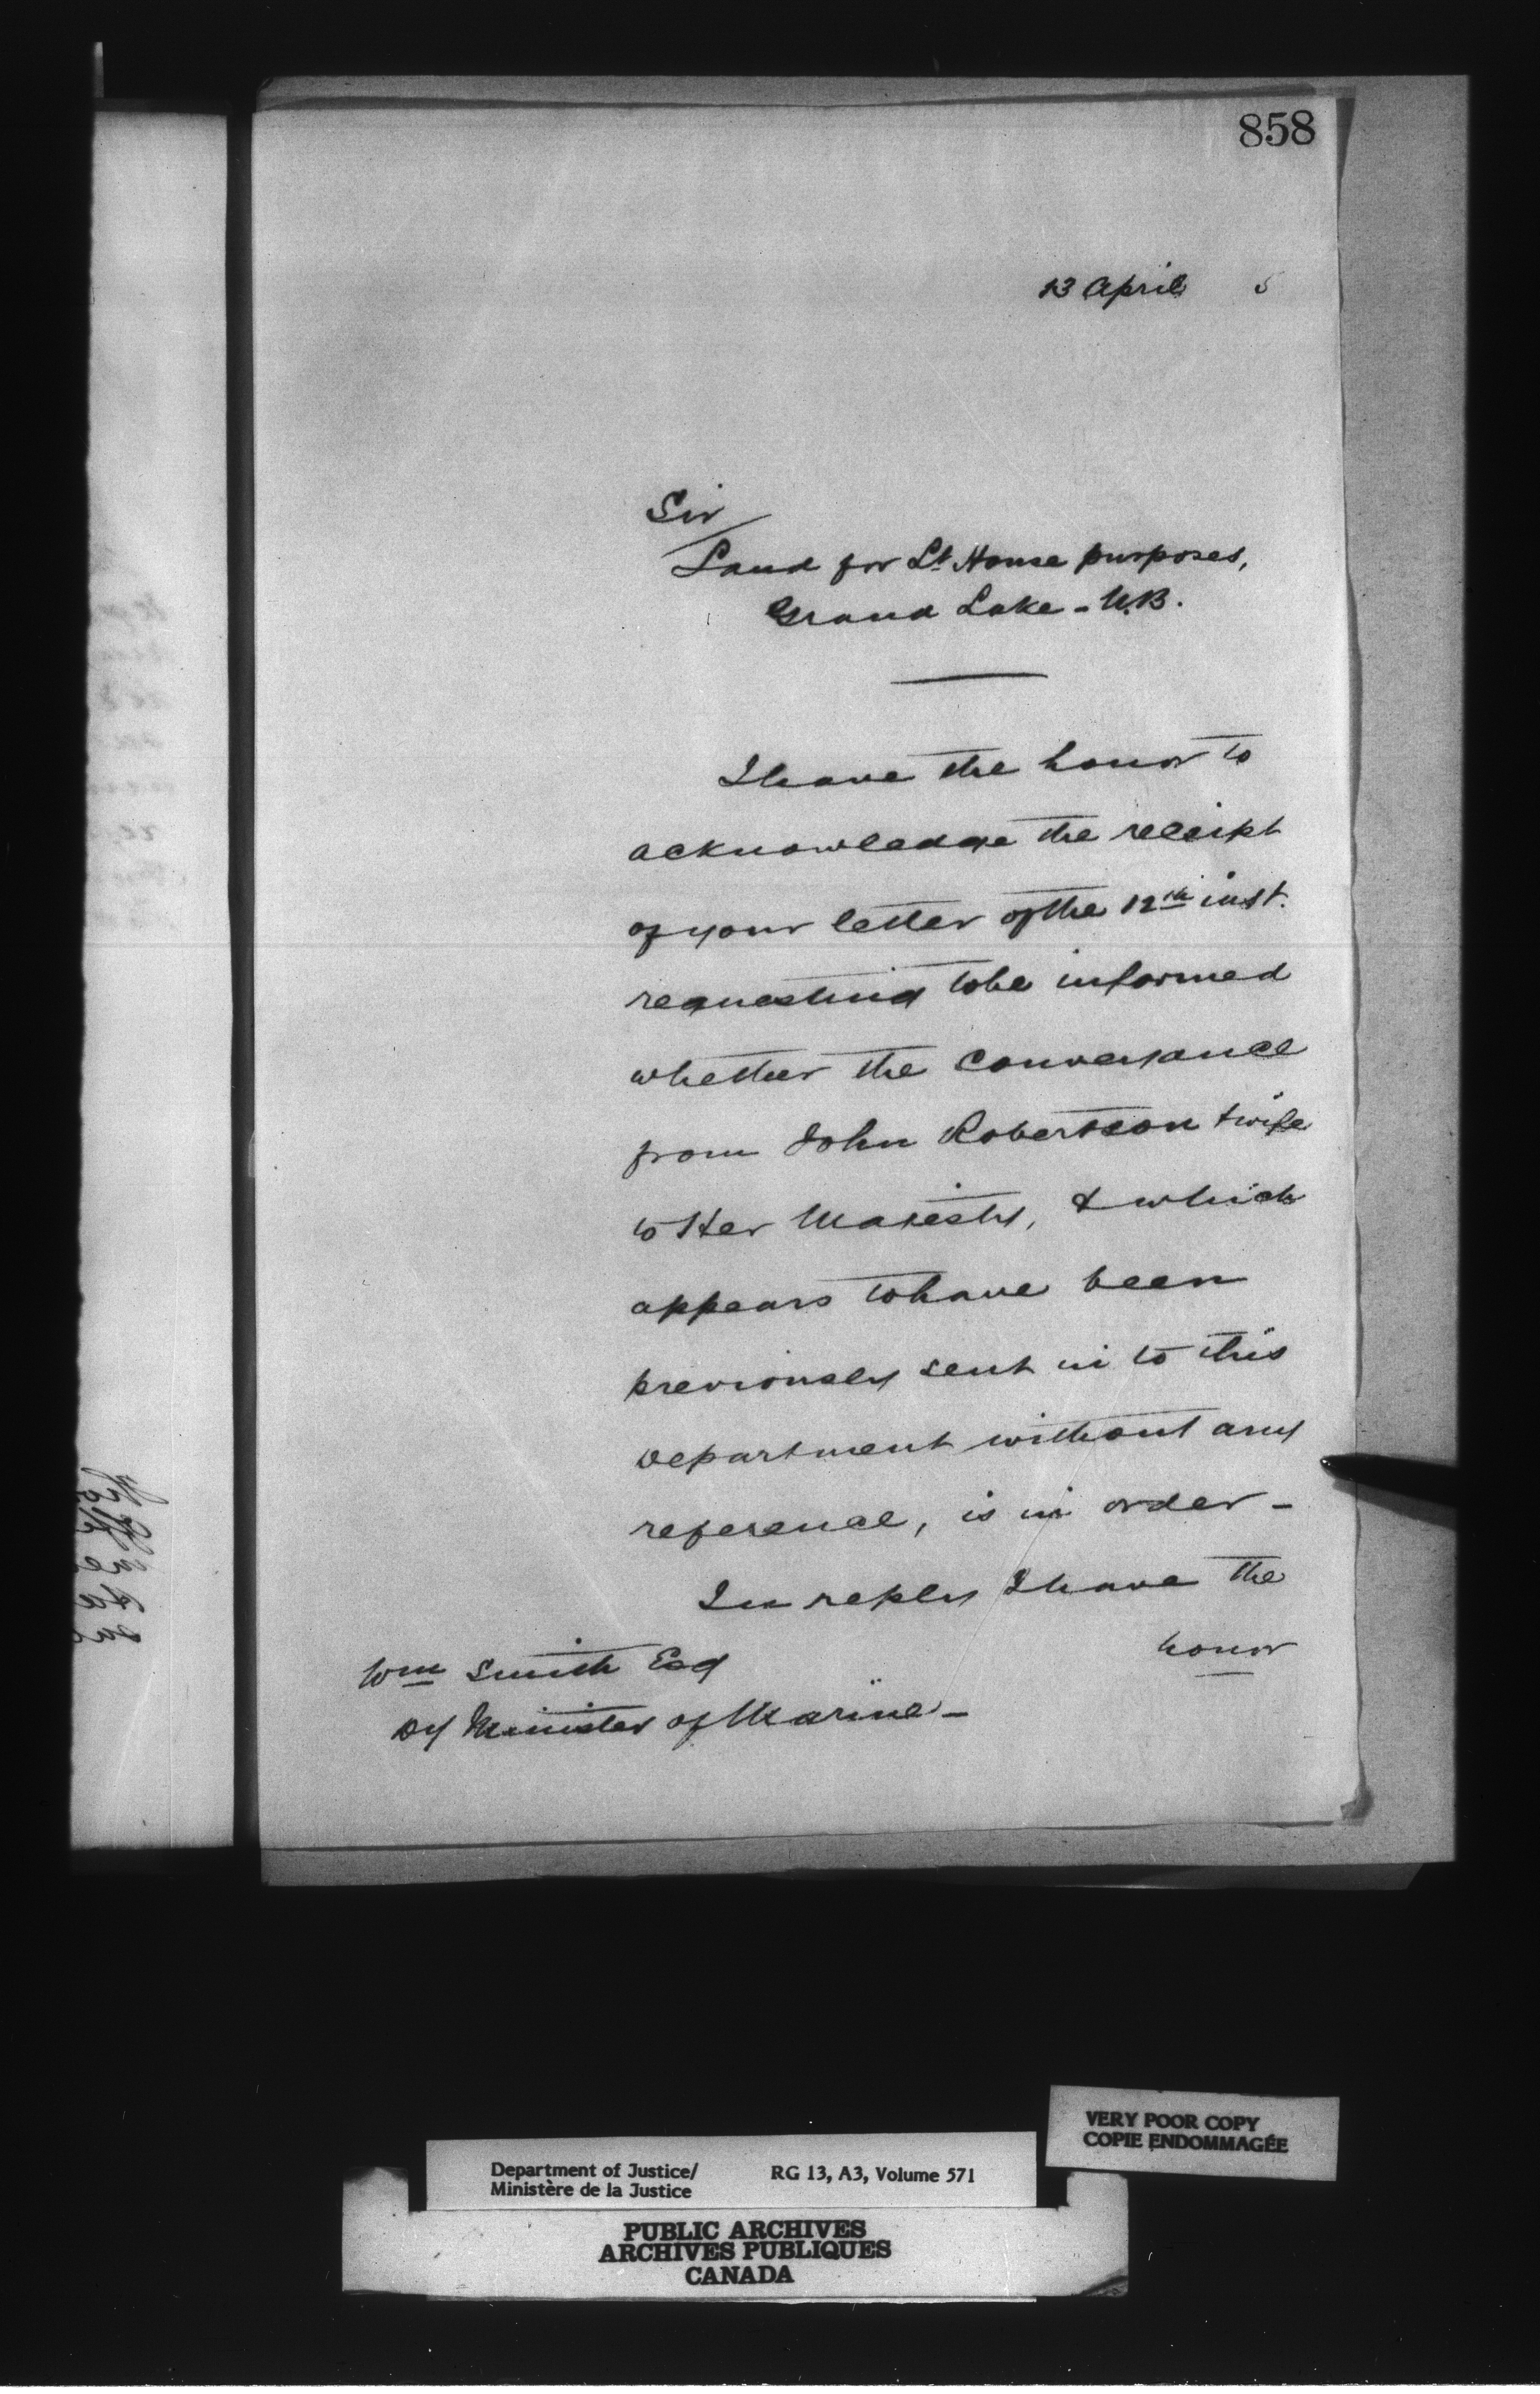 858
13 April 5
Sir
Land for Lt House purposes,
Grand Lake - N.B.
I have the honor to
acknowledge the receipt
of your letter of the 12th inst.
requesting to be informed
whether the conveyance
from John Robertson & wife
to Her Majesty, & which
appears to have been
previously sent in to this
Department without any
reference, is in order -
In reply I have the
honor
Wm Smith Esq
Dy Minister of Marine -
VERY POOR COPY
COPIE ENDOMMAGÉE
Department of Justice/ RG 13, A3, Volume 571
Ministère de la Justice
PUBLIC ARCHIVES
ARCHIVES PUBLIQUES
CANADA